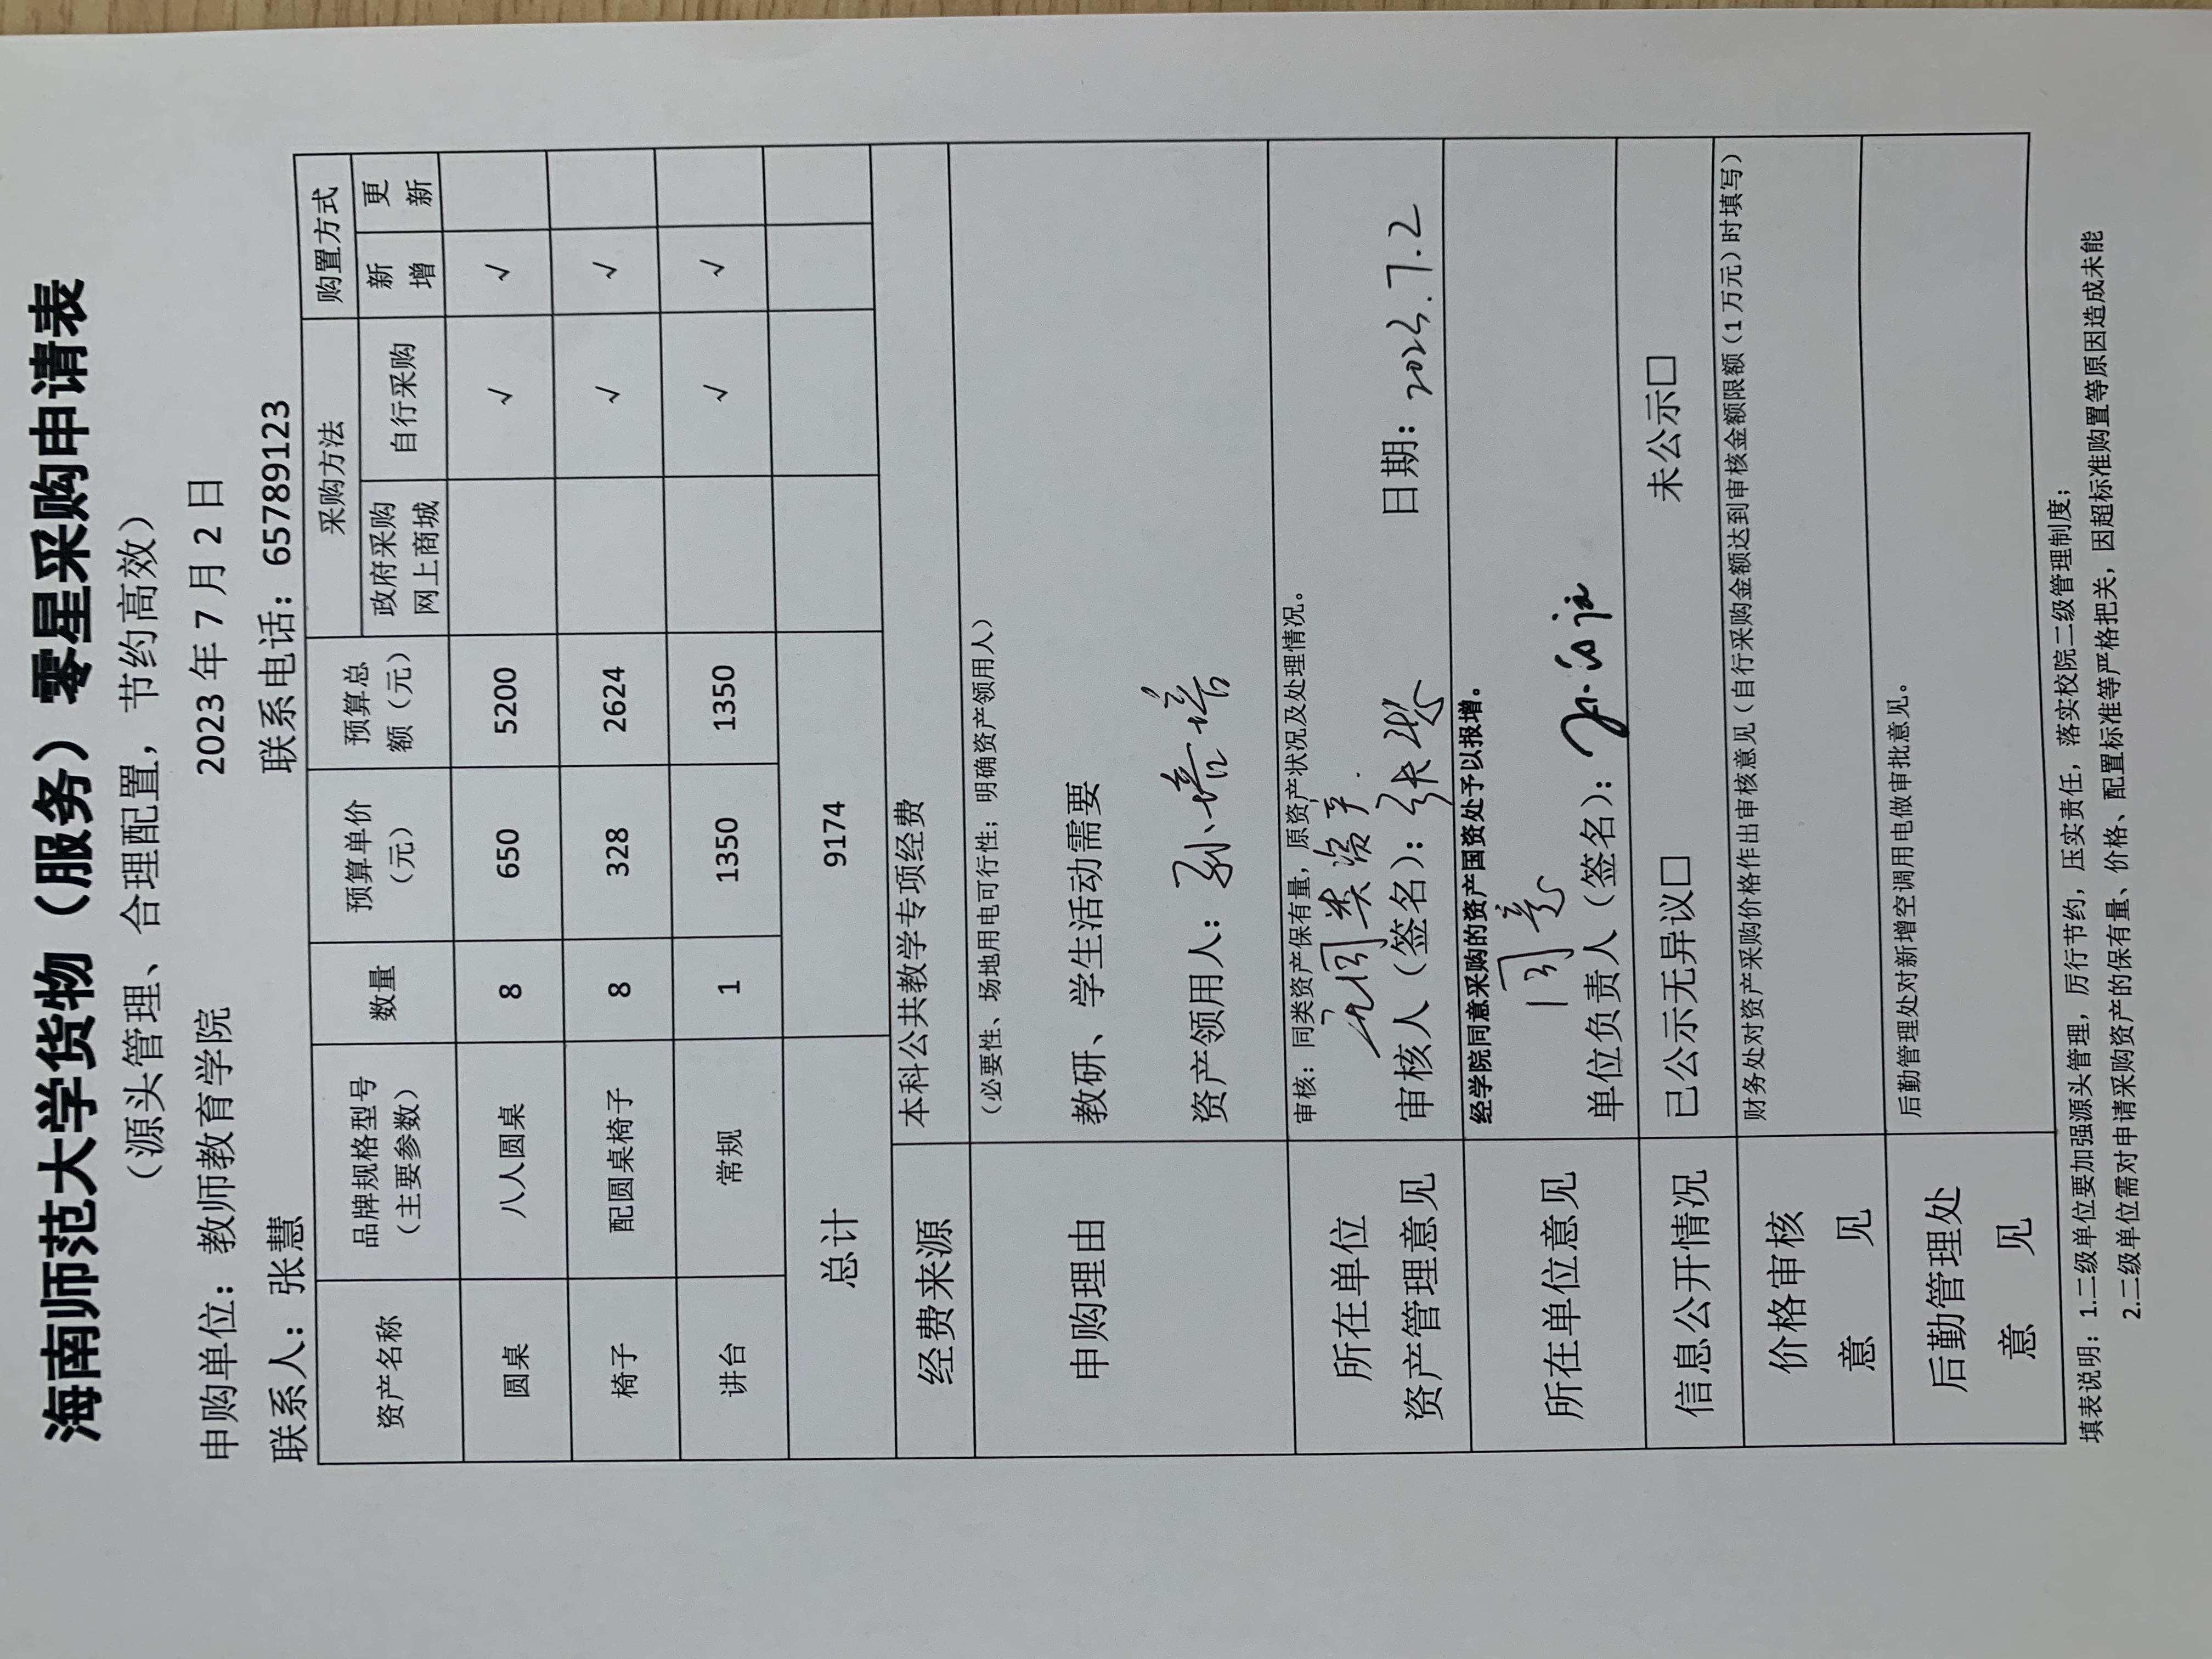 海南师范大学货物（服务）零星采购申请表
（源头管理、合理配置，节约高效）
申购单位：教师教育学院 2023年7月2日
联系人：张慧 联系电话：65789123
资产名称 品牌规格型号（主要参数） 数量 预算单价（元） 预算总额（元） 采购方法 购置方式
政府采购网上商城 自行采购 新增 更新
圆桌 八人圆桌 8 650 5200 √ √
椅子 配圆桌椅子 8 328 2624 √ √
讲台 常规 1 1350 1350 √ √
总计 9174
经费来源 本科公共教学专项经费
申购理由 （必要性、场地用电可行性；明确资产领用人）
教研、学生活动需要
资产领用人：孙培培
所在单位资产管理意见 审核：同类资产保有量，原资产状况及处理情况。
无同类资产.
审核人（签名）：张 日期：2023.7.2
所在单位意见 经学院同意采购的资产国资处予以报增。
同意
单位负责人（签名）：
信息公开情况 已公示无异议□ 未公示□
价格审核意见 财务处对资产采购价格作出审核意见（自行采购金额达到审核金额限额（1万元）时填写）
后勤管理处意见 后勤管理处对新增空调用电做审批意见。
填表说明：1.二级单位要加强源头管理，厉行节约，压实责任，落实校院二级管理制度；
2.二级单位需对申请采购资产的保有量、价格、配置标准等严格把关，因超标准购置等原因造成未能